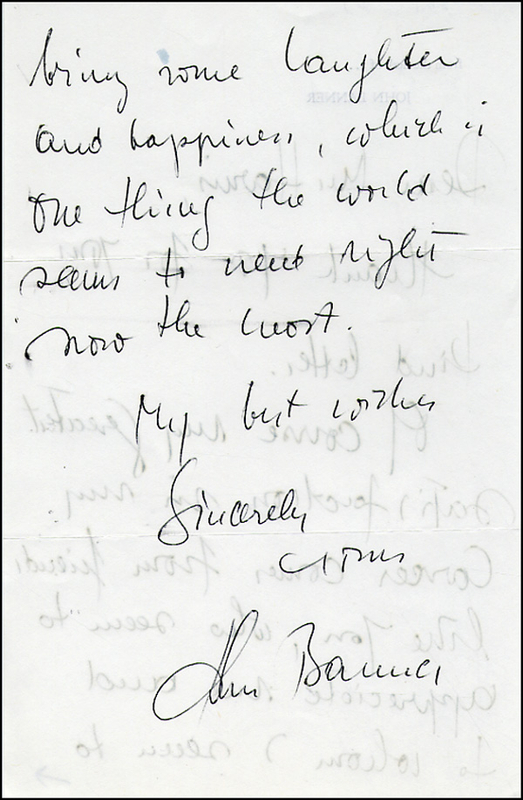 bring some laughter
and happiness, which is
one thing the world
seems to need right
now the most.
My best wishes
Sincerely
yours
John Banner